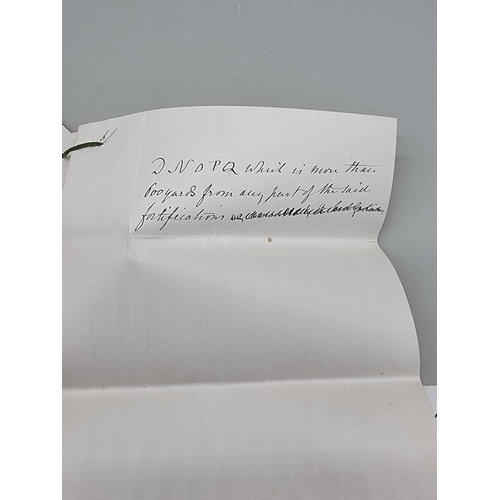 6/
D N O P Q which is more than
600 yards from any part of the said
fortifications